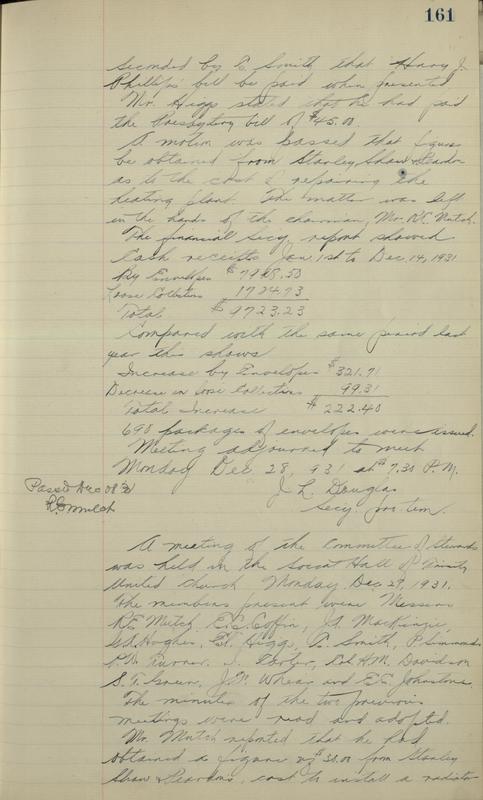 161
seconded by A. Smith that Harry J.
Phillips' bill be paid when presented
Mr. Higgs stated that he had paid
the Presbytery bill of $45.00.
A motion was passed that figures
be obtained from Stanley Shaw & Peardon
as to the cost of repairing the
heating plant. The matter was left
in the hands of the chairman, Mr. R.E. Mutch.
The financial Secy. report showed
Cash receipts Jan. 1st to Dec. 14, 1931
By Envelopes $7998.50
Loose Collections 1724.73
Total $9723.23
Compared with the same period last
year this shows
Increase by Envelopes $321.71
Decrease in loose Collections 99.31
Total Increase $222.40
698 packages of envelopes were issued.
Meeting adjourned to meet
Monday Dec. 28, 931 at 7.30 P.M.
J. L. Douglas
Secy. pro. tem.
Passed Dec 28/31
R.E. Mutch
A meeting of the Committee of Stewards
was held in the Social Hall of Trinity
United Church Monday, Dec. 29, 1931.
The members present were Messrs
R.E. Mutch, E.C. Coffin, J.A. MacKenzie,
Hughes, Higgs, A. Smith, P. Simmonds
Turner, J. Col. H.M. Davidson
S. F. J.P. Whear and E.C. Johnstone.
The minutes of the two previous
meetings were read and adopted.
Mr. Mutch reported that he had
obtained a figure of $30.00 from Stanley
Shaw & Peardon's, cost to install a radiator